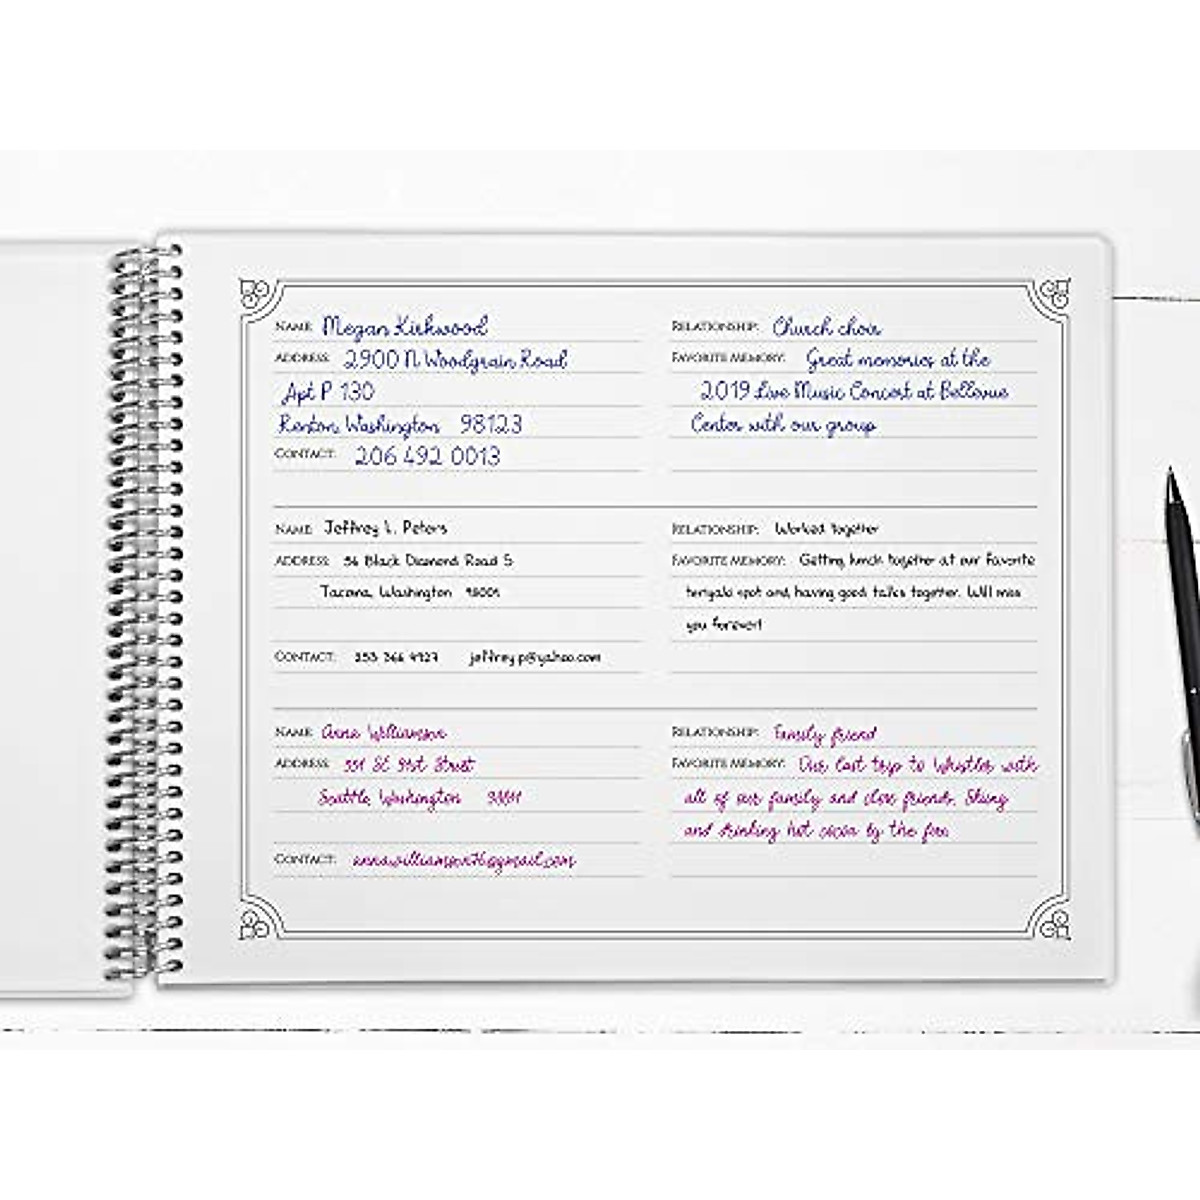 NAME: Megan Kirkwood
ADDRESS: 2900 N Woodgrain Road
Apt P 130
Renton, Washington 98123
CONTACT: 206 492 0013
RELATIONSHIP: Church choir
FAVORITE MEMORY: Great memories at the
2019 Live Music Concert at Bellevue
Center with our group
NAME: Jeffrey L. Peters
ADDRESS: 56 Black Diamond Road S
Tacoma, Washington
CONTACT: 253 366 4927 jeffreyp@yahoo.com
RELATIONSHIP: Worked together
FAVORITE MEMORY: Getting lunch together at our favorite
teriyaki spot and having good talks together. Will miss
you forever!
NAME: Anna Williamson
ADDRESS: 551 SE 91st Street
Seattle, Washington
CONTACT: annawilliamson76@gmail.com
RELATIONSHIP: Family friend
FAVORITE MEMORY: Our last trip to Whistler with
all of our family and close friends. Skiing
and drinking hot cocoa by the fire.